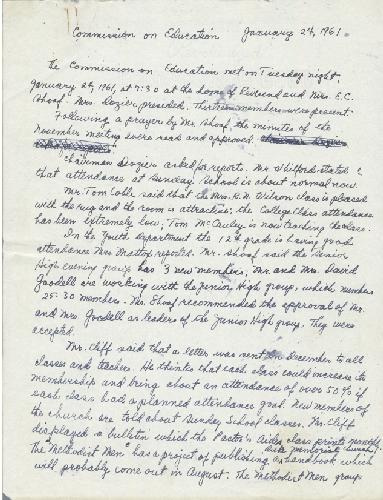 Commission on Education January 24, 1961.
The Commission on Education met on Tuesday night,
January 24, 1961, at 7:30 at the home of Reverend and Mrs. E.C.
Shoaf. Mrs. Dozier presided. Thirteen members were present.
Following a prayer by Mr. Shoaf, the minutes of the
November meeting were read and approved.
Chairman Dozier asked for reports. Mr. stated
that attendance at Sunday School is about normal now.
Mr. Tom Cobb said that the Mrs. R. N. Wilson class is pleased
with the rug and the room is attractive; the College Class attendance
has been extremely low; Tom McCauley is now teaching the class.
In the Youth Department the 12th grade is having good
attendance Mrs. Mattox reported. Mr. Shoaf said the Senior
High evening group has 3 new members; Mr. and Mrs. David
Goodell are working with the Junior High group, which numbers
25-30 members. Mr. Shoaf recommended the approval of Mr.
and Mrs. Goodell as leaders of the Junior High group. They were
accepted.
Mr. Cliff said that a letter was sent in December to all
classes and teachers. He thinks that each class could increase its
membership and bring about an attendance of over 50% if
each class had a planned attendance goal. New members of
the church are told about Sunday School classes. Mr. Cliff
displayed a bulletin which the Pastor's Aides class prints
Memorial Church.
The "Methodist Men" has a project of publishing a handbook which
will probably come out in August. The Methodist Men group